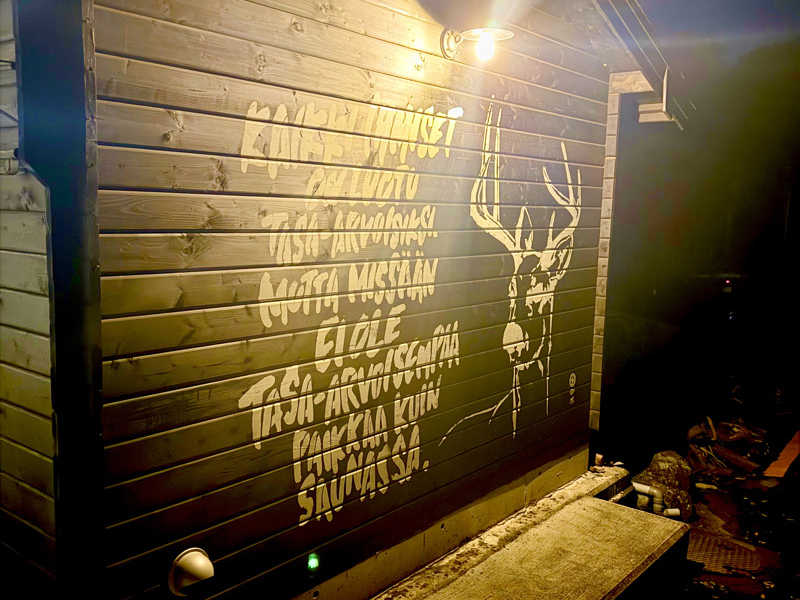 KAIKKI IHMISET
ON LUOTU
TASA-ARVOISIKSI
MUTTA MISSÄÄN
EI OLE
TASA-ARVOISEMPAA
PAIKKAA KUIN
SAUNASSA.